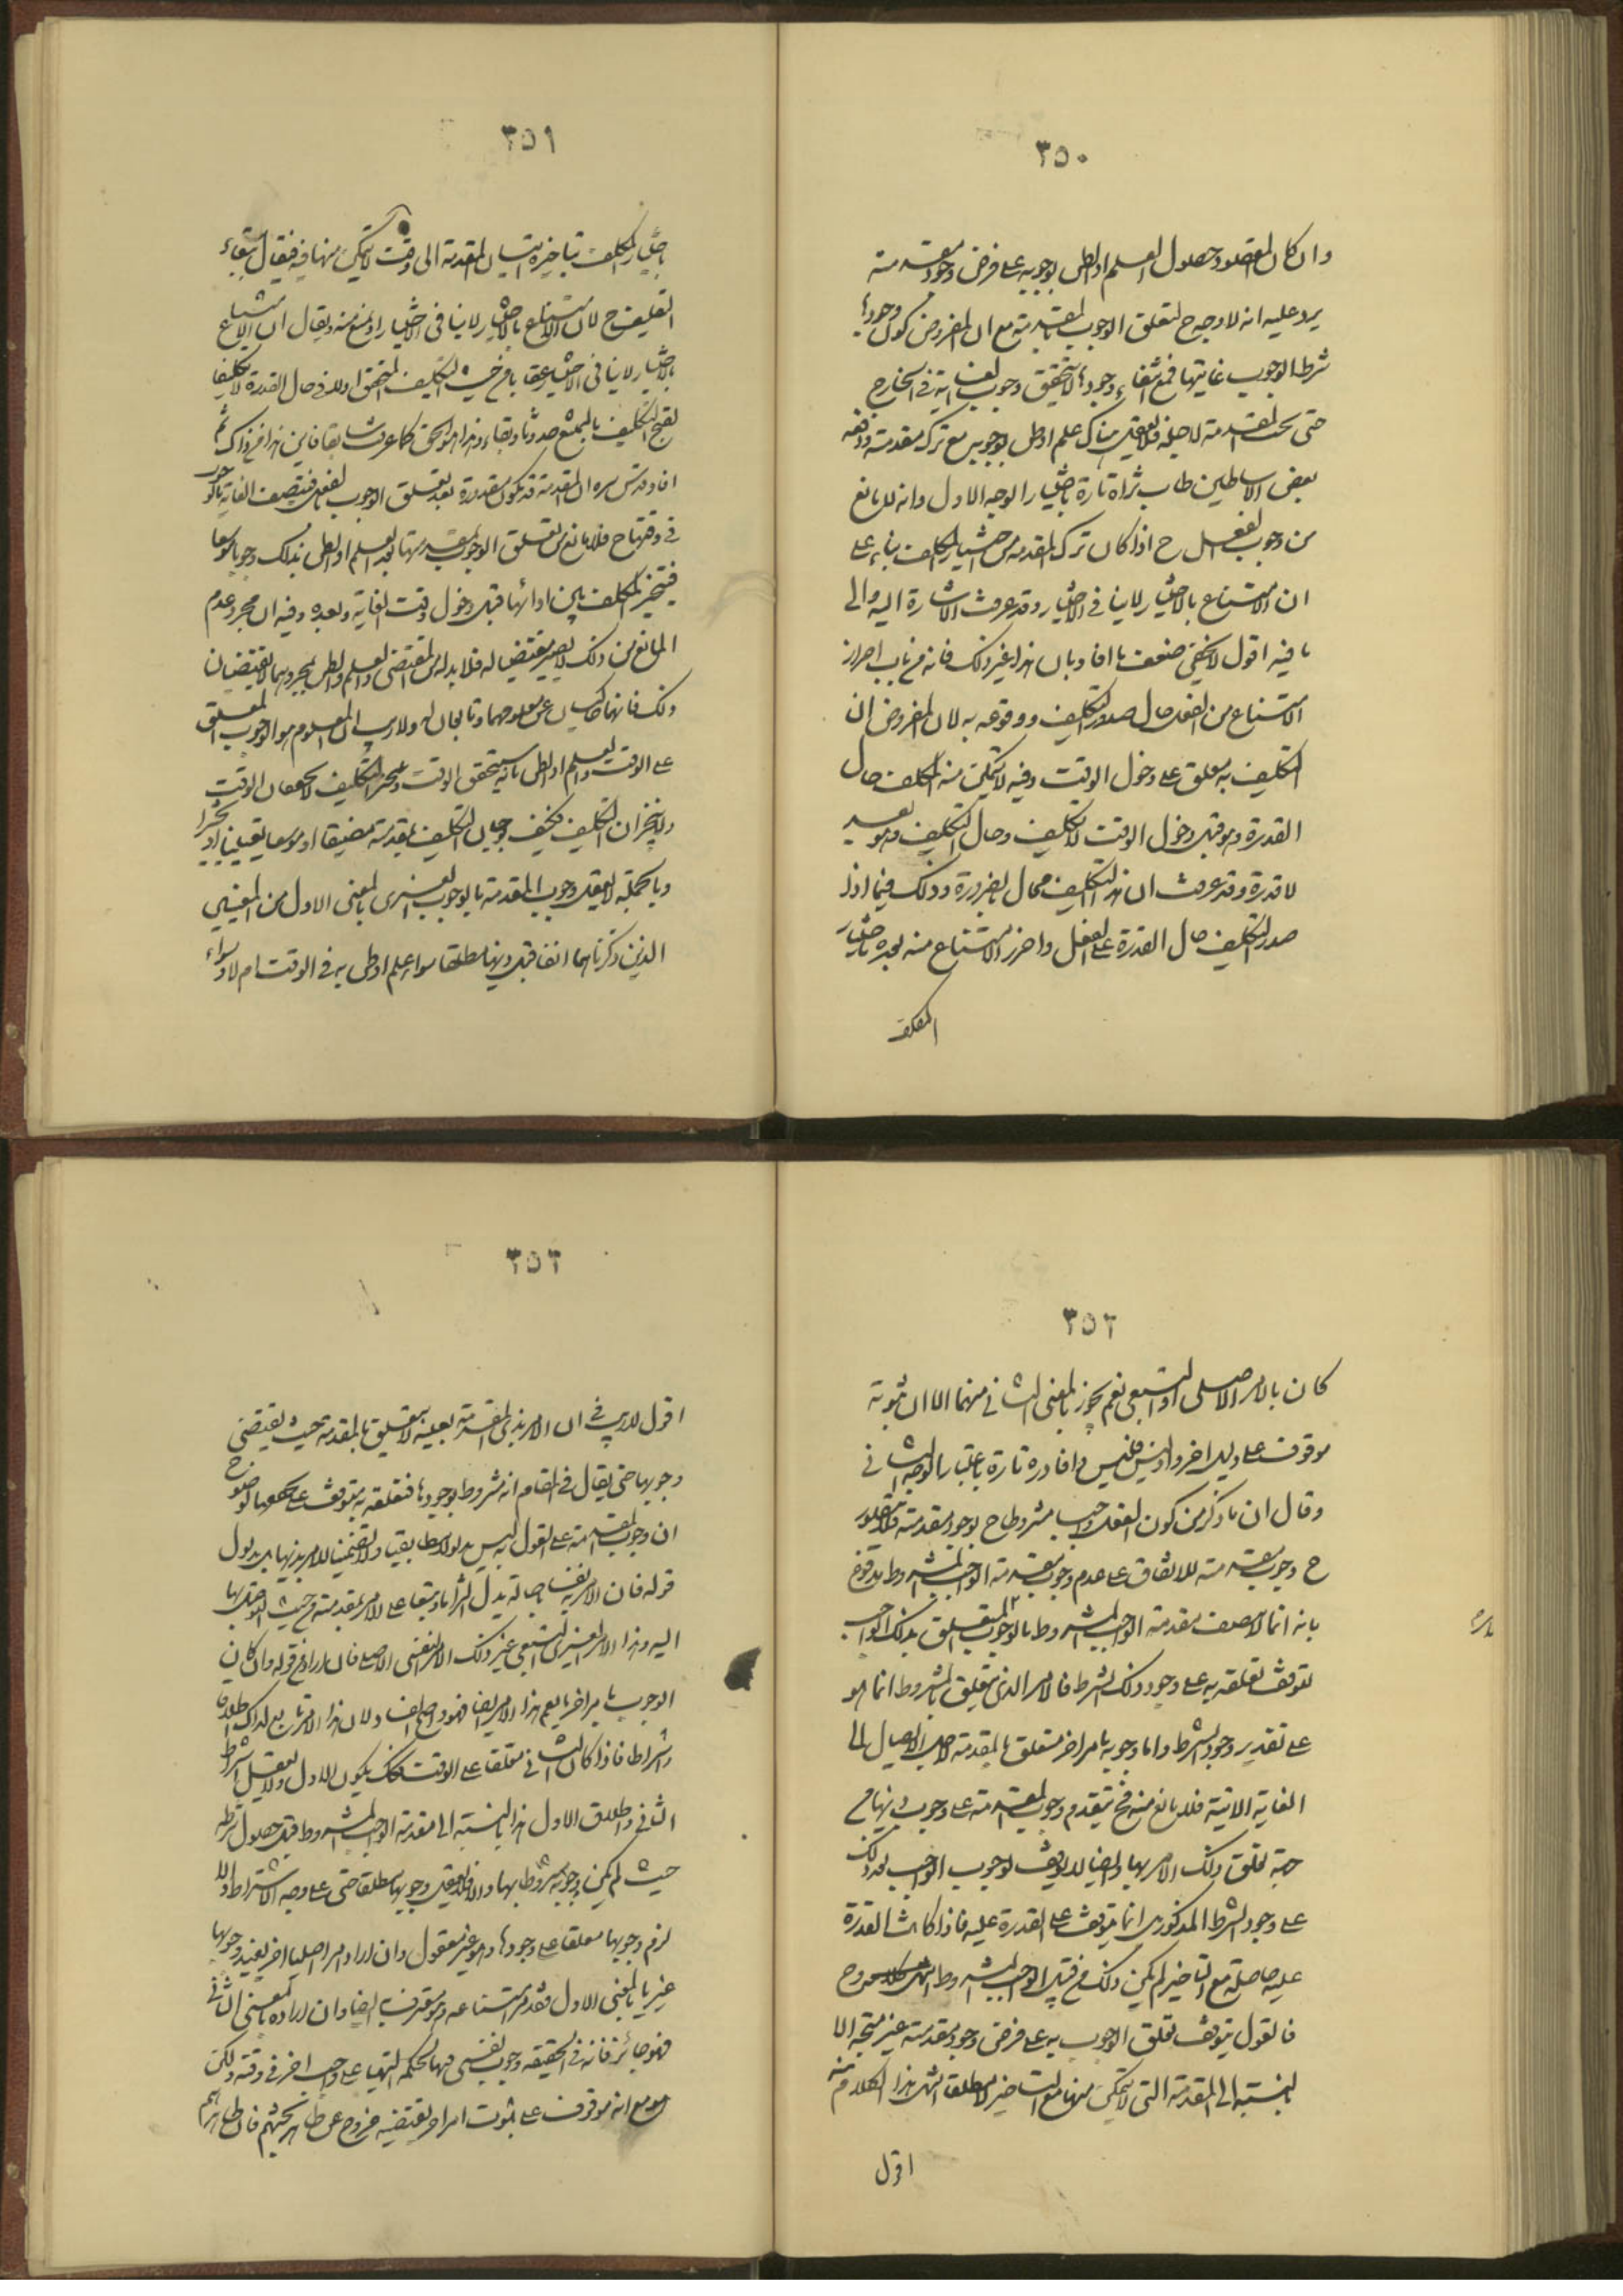 ٣٥٠
وان كان المقصود حصول العلم او الظن بوجوبه على فرض وجود مقدمته
يرد عليه انه لا وجه ح لتعلق الوجوب بالمقدمة مع ان المفروض كون وجودها
شرطا لوجوب غايتها فمع انتفاء وجودها لا يتحقق وجوب الغاية في الخارج
حتى يجب المقدمة لاجله فلا يعقل هناك علم او ظن بوجوبه مع ترك مقدمته ودفعه
بعض الاساطين طاب ثراه تارة باختيار الوجه الاول وانه لا مانع
من وجوب الفعل ح اذا كان ترك المقدمة من اختيار المكلف بناء على
ان الامتناع بالاختيار لا ينافي الاختيار وقد عرفت الاشارة اليه والى
ما فيه اقول لا يخفى ضعف ما افاد بان هذا غير ذلك فانه من باب احراز
الامتناع من الفعل حال صدور التكليف ووقوعه به لان المفروض ان
التكليف به معلق على دخول الوقت وفيه لا يتمكن منه المكلف حال
القدرة وهو قبل دخول الوقت لا تكليف وحال التكليف وهو بعيد
لا قدرة وقد عرفت ان هذا التكليف محال بالضرورة وذلك فيما اذا
صدر التكليف حال القدرة على الفعل واحرز الامتناع منه بعده باختيار
المكلف
٣٥١
باختيار المكلف بتاخيره اتيان المقدمة الى وقت لا يتمكن منها فيه فيقال ببقاء
التكليف ح لان الامتناع بالاختيار لا ينافي الاختيار او يمنع منه ويقال ان الامتناع
بالاختيار لا ينافي الاختيار عقابا من حيث التكليف المتحقق اولا في حال القدرة لا تكليفا
لقبح التكليف بالممتنع حدوثا وبقاء وهذا هو الحق كما عرفت سابقا فاين هذا من ذاك ثم
افاد قدس سره ان المقدمة قد تكون مقدورة بعد تعلق الوجوب بالفعل فيتصف الغاية بالوجوب
في وقتها ح فلا مانع من تعلق الوجوب بمقدمتها بعد العلم او الظن بذلك وجوبا موسعا
فيتخير المكلف بين ادائها قبل دخول وقت الغاية وبعده وفيه ان مجرد عدم
المانع من ذلك لا يصير مقتضيا له فلا بد له من المقتضى والعلم والظن بمجردهما لا يقتضيان
ذلك فانهما حاكيان عن معلومهما وتابعان له ولا ريب ان المعلوم هو الوجوب المعلق
على الوقت والعلم او الظن بانه سيتحقق الوقت وينجز التكليف لا يجعلان الوقت
ولا ينجزان التكليف فكيف يوجبان التكليف بمقدمته مضيقا او موسعا تعيينا او تخييرا
وبالجملة لا يعقل وجوب المقدمة بالوجوب الغيري بالمعنى الاول من المعنيين
الذين ذكرناهما انفا قبل ذيها مطلقا سواء علم او ظن به في الوقت ام لا وسواء
٣٥٢
كان بالامر الاصلي او التبعي نعم يجوز بالمعنى الثاني منهما الا ان ثبوته
موقوف على دليل اخر واذ ليس فليس وافاد ره تارة باعتبار الوجه الثاني
وقال ان ما ذكر من كون الفعل واجبا مشروطا ح بوجود مقدمته فلا يتصور
ح وجوب مقدمته للاتفاق على عدم وجوب مقدمة الواجب المشروط مدفوع
بانه انما لا يتصف مقدمة الواجب المشروط بالوجوب المتعلق بذلك الواجب
لتوقف تعلقه به على وجود ذلك الشرط فالامر الذي يتعلق بالمشروط انما هو
على تقدير وجود الشرط واما وجوبه بامر اخر متعلق بالمقدمة لاجل الايصال الى
الغاية الاتية فلا مانع منه فح يتقدم وجوب المقدمة على وجوب ذيها من
جهة تعلق ذلك الامر بها وايضا لا يتوقف لوجوب الواجب بعد ذلك
على وجود الشرط المذكور بل انما يتوقف على القدرة عليه فاذا كانت القدرة
عليه حاصلة مع التاخير لم يكن ذلك من قبيل الواجب المشروط وح
فالقول بتوقف تعلق الوجوب به على فرض وجود مقدمته غير متجه الا
بالنسبة الى المقدمة التي لا يتمكن منها مع التاخير لا مطلقا انتهى هذا الكلام منه
اقول
٣٥٣
اقول لا ريب في ان الامر بذي المقدمة بعينه لا يتعلق بالمقدمة بحيث يقتضي
وجوبها حتى يقال في المقام انه مشروط بوجودها فتعلقه به يتوقف على
ان وجوب المقدمة على القول به ليس مدلولا مطابقيا ولا تضمنيا للامر بذيها بل مدلول
قوله فان الامر به اصالة يدل التزاما وتبعا على الامر بمقدمته من حيث التوصل بها
اليه وهذا الامر الغيري التبعي غير ذلك الامر النفسي الاصلي فان اراد من قوله وان كان
الوجوب بامر اخر ما يعم هذا الامر ايضا فهو واضح الضعف ولان هذا الامر تابع لذاك اطلاقا
واشتراطا فاذا كان الثاني معلقا على الوقت فكذلك يكون الاول ولا يعقل اشتراط
الثاني واطلاق الاول هذا بالنسبة الى مقدمة الواجب المشروط قبل حصول شرطه
حيث لم يكن وجوبه مشروطا بها والا فلا يعقل وجوبها مطلقا حتى على وجه الاشتراط والا
لزم وجوبها معلقا على وجودها وهو غير معقول وان اراد امرا اصليا اخر يفيد وجوبها
غيريا بالمعنى الاول فقد مر امتناعه وهو معترف به ايضا وان اراده بالمعنى الثاني
فهو جائز فانه في الحقيقة وجوب نفسي فيها لحكمة التهيؤ على واجب اخر في وقته ولكن
هو مع انه موقوف على ثبوت امر اخر يقتضيه خروج عن طاهر تحيثهم فان ظاهرهم